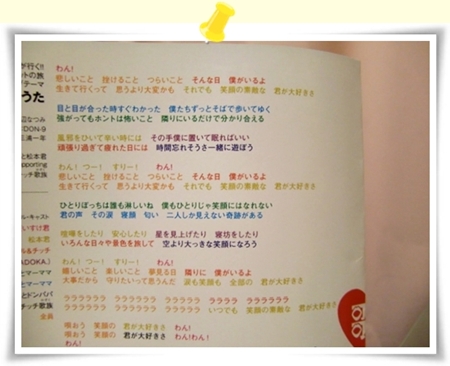 わん!
悲しいこと 挫けること つらいこと そんな日 僕がいるよ
生きて行くって 思うより大変かも それでも 笑顔の素敵な 君が大好きさ
目と目が合った時すぐわかった 僕たちずっとそばで歩いてゆく
強がってもホントは怖いこと 隣りにいるだけで分かり合える
風邪をひいて辛い時には その手僕に置いて眠ればいい
頑張り過ぎて疲れた日には 時間忘れそうさ一緒に遊ぼう
わん! つー! すりー! わん!
悲しいこと 挫けること つらいこと そんな日 僕がいるよ
生きて行くって 思うより大変かも それでも 笑顔の素敵な 君が大好きさ
ひとりぼっちは誰も淋しいね 僕もひとりじゃ笑顔にはなれない
君の声 その涙 寝顔 匂い 二人しか見えない奇跡がある
喧嘩をしたり 安心したり 星を見上げたり 寝坊をしたり
いろんな日々や景色を旅して 空より大っきな笑顔になろう
わん! つー! すりー! わん!
嬉しいこと 楽しいこと 夢見る日 隣りに 僕がいるよ
大事だから 守りたいって思うんだ 涙も笑顔も 全部の 君が大好きさ
ラララララララ ラララララ ラララララ ラララララ ラララララララ
ラララララララ ラララララ ラララララ いつでも 笑顔の素敵な 君が大好きさ
唄おう 笑顔の 君が大好きさ わん!
唄おう 笑顔の 君が大好きさ わん!わん!
わん!
が行く!!
ットの旅
テーマ
うた
辺なつみ
DON-9
三浦一年
と松本君
pporting
チッチ歌族
ル・キャスト
いすけ君
松本君
ル&チッチ
ADOKA.)
とマーママ
とマーママ
とドンパパ
チッチ歌族
全員